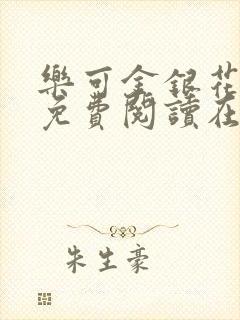 樂可金銀花
免費閱讀在
朱生豪